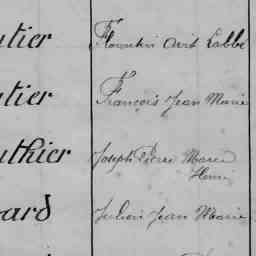 utier Florentin Avit Labbé
utier François Jean Marie
uthier Joseph Pierre Marie
Henri
ard Julien Jean Marie